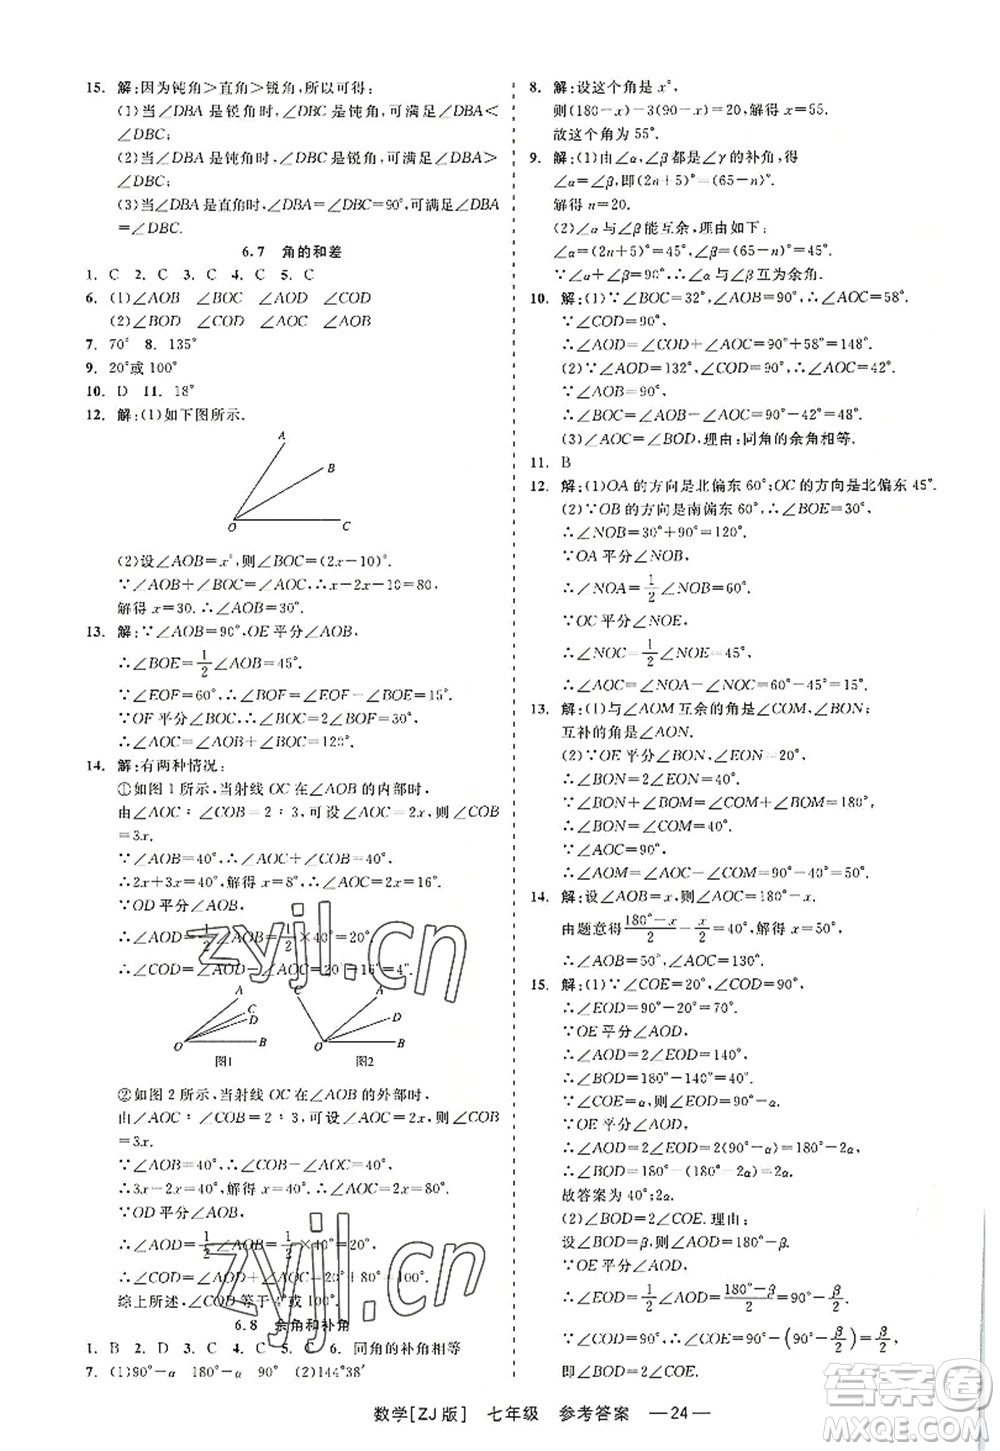 15. 解:因为钝角>直角>锐角,所以可得:
(1)当∠DBA是锐角时,∠DBC是钝角,可满足∠DBA<
∠DBC;
(2)当∠DBA是钝角时,∠DBC是锐角,可满足∠DBA>
∠DBC;
(3)当∠DBA是直角时,∠DBA=∠DBC=90°,可满足∠DBA
=∠DBC.
6.7 角的和差
1. C 2. C 3. C 4. C 5. C
6. (1)∠AOB ∠BOC ∠AOD ∠COD
(2)∠BOD ∠COD ∠AOC ∠AOB
7. 70° 8. 135°
9. 20°或100°
10. D 11. 18°
12. 解:(1)如下图所示.
A
B
O C
(2)设∠AOB=x°,则∠BOC=(2x-10)°.
∵∠AOB+∠BOC=∠AOC,∴x+2x-10=80,
解得x=30.∴∠AOB=30°.
13. 解:∵∠AOB=90°,OE平分∠AOB,
∴∠BOE=1/2∠AOB=45°.
∵∠EOF=60°,∴∠BOF=∠EOF-∠BOE=15°.
∵OF平分∠BOC,∴∠BOC=2∠BOF=30°.
∴∠AOC=∠AOB+∠BOC=120°.
14. 解:有两种情况:
①如图1所示,当射线OC在∠AOB的内部时,
由∠AOC∶∠COB=2∶3,可设∠AOC=2x,∠COB
=3x.
∵∠AOB=40°,∴∠AOC+∠COB=40°.
∴2x+3x=40°,解得x=8°,∴∠AOC=2x=16°.
∵OD平分∠AOB,
∴∠AOD=1/2∠AOB=1/2×40°=20°.
∴∠COD=∠AOD-∠AOC=20°-16°=4°.
A
C
D
O B
图1
C A
D
O B
图2
②如图2所示,当射线OC在∠AOB的外部时,
由∠AOC∶∠COB=2∶3,可设∠AOC=2x,∠COB
=3x.
∵∠AOB=40°,∴∠COB-∠AOC=40°.
∴3x-2x=40°,解得x=40°,∴∠AOC=2x=80°.
∵OD平分∠AOB,
∴∠AOD=1/2∠AOB=1/2×40°=20°.
∴∠COD=∠AOD+∠AOC=20°+80°=100°.
综上所述,∠COD等于4°或100°.
6.8 余角和补角
1. B 2. D 3. C 4. C 5. C 6. 同角的补角相等
7. (1)90°-α 180°-α 90° (2)144°38′
8. 解:设这个角是x°,
则(180-x)-3(90-x)=20,解得x=55.
故这个角为55°.
9. 解:(1)由∠α,∠β都是∠γ的补角,得
∠α=∠β,即(2n+5)°=(65-n)°.
解得n=20.
(2)∠α与∠β能互余,理由如下:
∠α=(2n+5)°=45°,∠β=(65-n)°=45°.
∵∠α+∠β=90°,∴∠α与∠β互为余角.
10. 解:(1)∵∠BOC=32°,∠AOB=90°,∴∠AOC=58°.
∵∠COD=90°,
∴∠AOD=∠COD+∠AOC=148°.
(2)∵∠AOD=132°,∴∠AOC=42°.
∵∠AOB=90°,
∴∠BOC=∠AOB-∠AOC=90°-42°=48°.
(3)∠AOC=∠BOD,理由:同角的余角相等.
11. B
12. 解:(1)OA的方向是北偏东60°;OC的方向是北偏东45°.
(2)∵OB的方向是南偏东60°,∴∠BOE=30°.
∴∠NOB=30°+90°=120°.
∵OA平分∠NOB,
∴∠NOA=1/2∠NOB=60°.
∵OC平分∠NOE,
∴∠NOC=1/2∠NOE=45°.
∴∠AOC=∠NOA-∠NOC=60°-45°=15°.
13. 解:(1)与∠AOM互余的角是∠COM,∠BON;
互补的角是∠AON.
(2)∵OE平分∠BON,∠EON=20°,
∴∠BON=2∠EON=40°.
∵∠BON+∠BOM=∠COM+∠BOM=180°,
∴∠BON=∠COM=40°.
∵∠AOC=90°,
∴∠AOM=∠AOC-∠COM=50°.
14. 解:设∠AOB=x,则∠AOC=180°-x.
由题意得(180°-x)/2-x/2=40°,解得x=50°,
∴∠AOB=50°,∠AOC=130°.
15. 解:(1)∵∠COE=20°,∠COD=90°,
∴∠EOD=90°-20°=70°.
∵OE平分∠AOD,
∴∠AOD=2∠EOD=140°.
∴∠BOD=180°-∠AOD=40°.
∵∠COE=α,∴∠EOD=90°-α.
∵OE平分∠AOD,
∴∠AOD=2∠EOD=2(90°-α)=180°-2α.
∴∠BOD=180°-(180°-2α)=2α.
故答案为40°;2α.
(2)∠BOD=2∠COE.理由:
设∠BOD=β,则∠AOD=180°-β.
∵OE平分∠AOD,
∴∠EOD=1/2∠AOD=(180°-β)/2=90°-β/2.
∵∠COD=90°,∴∠COE=90°-(90°-β/2)=β/2.
即∠BOD=2∠COE.
数学[ZJ版] 七年级 参考答案 —24—
zyjl.cn
zyjl.cn
答案圈
MXQE.COM